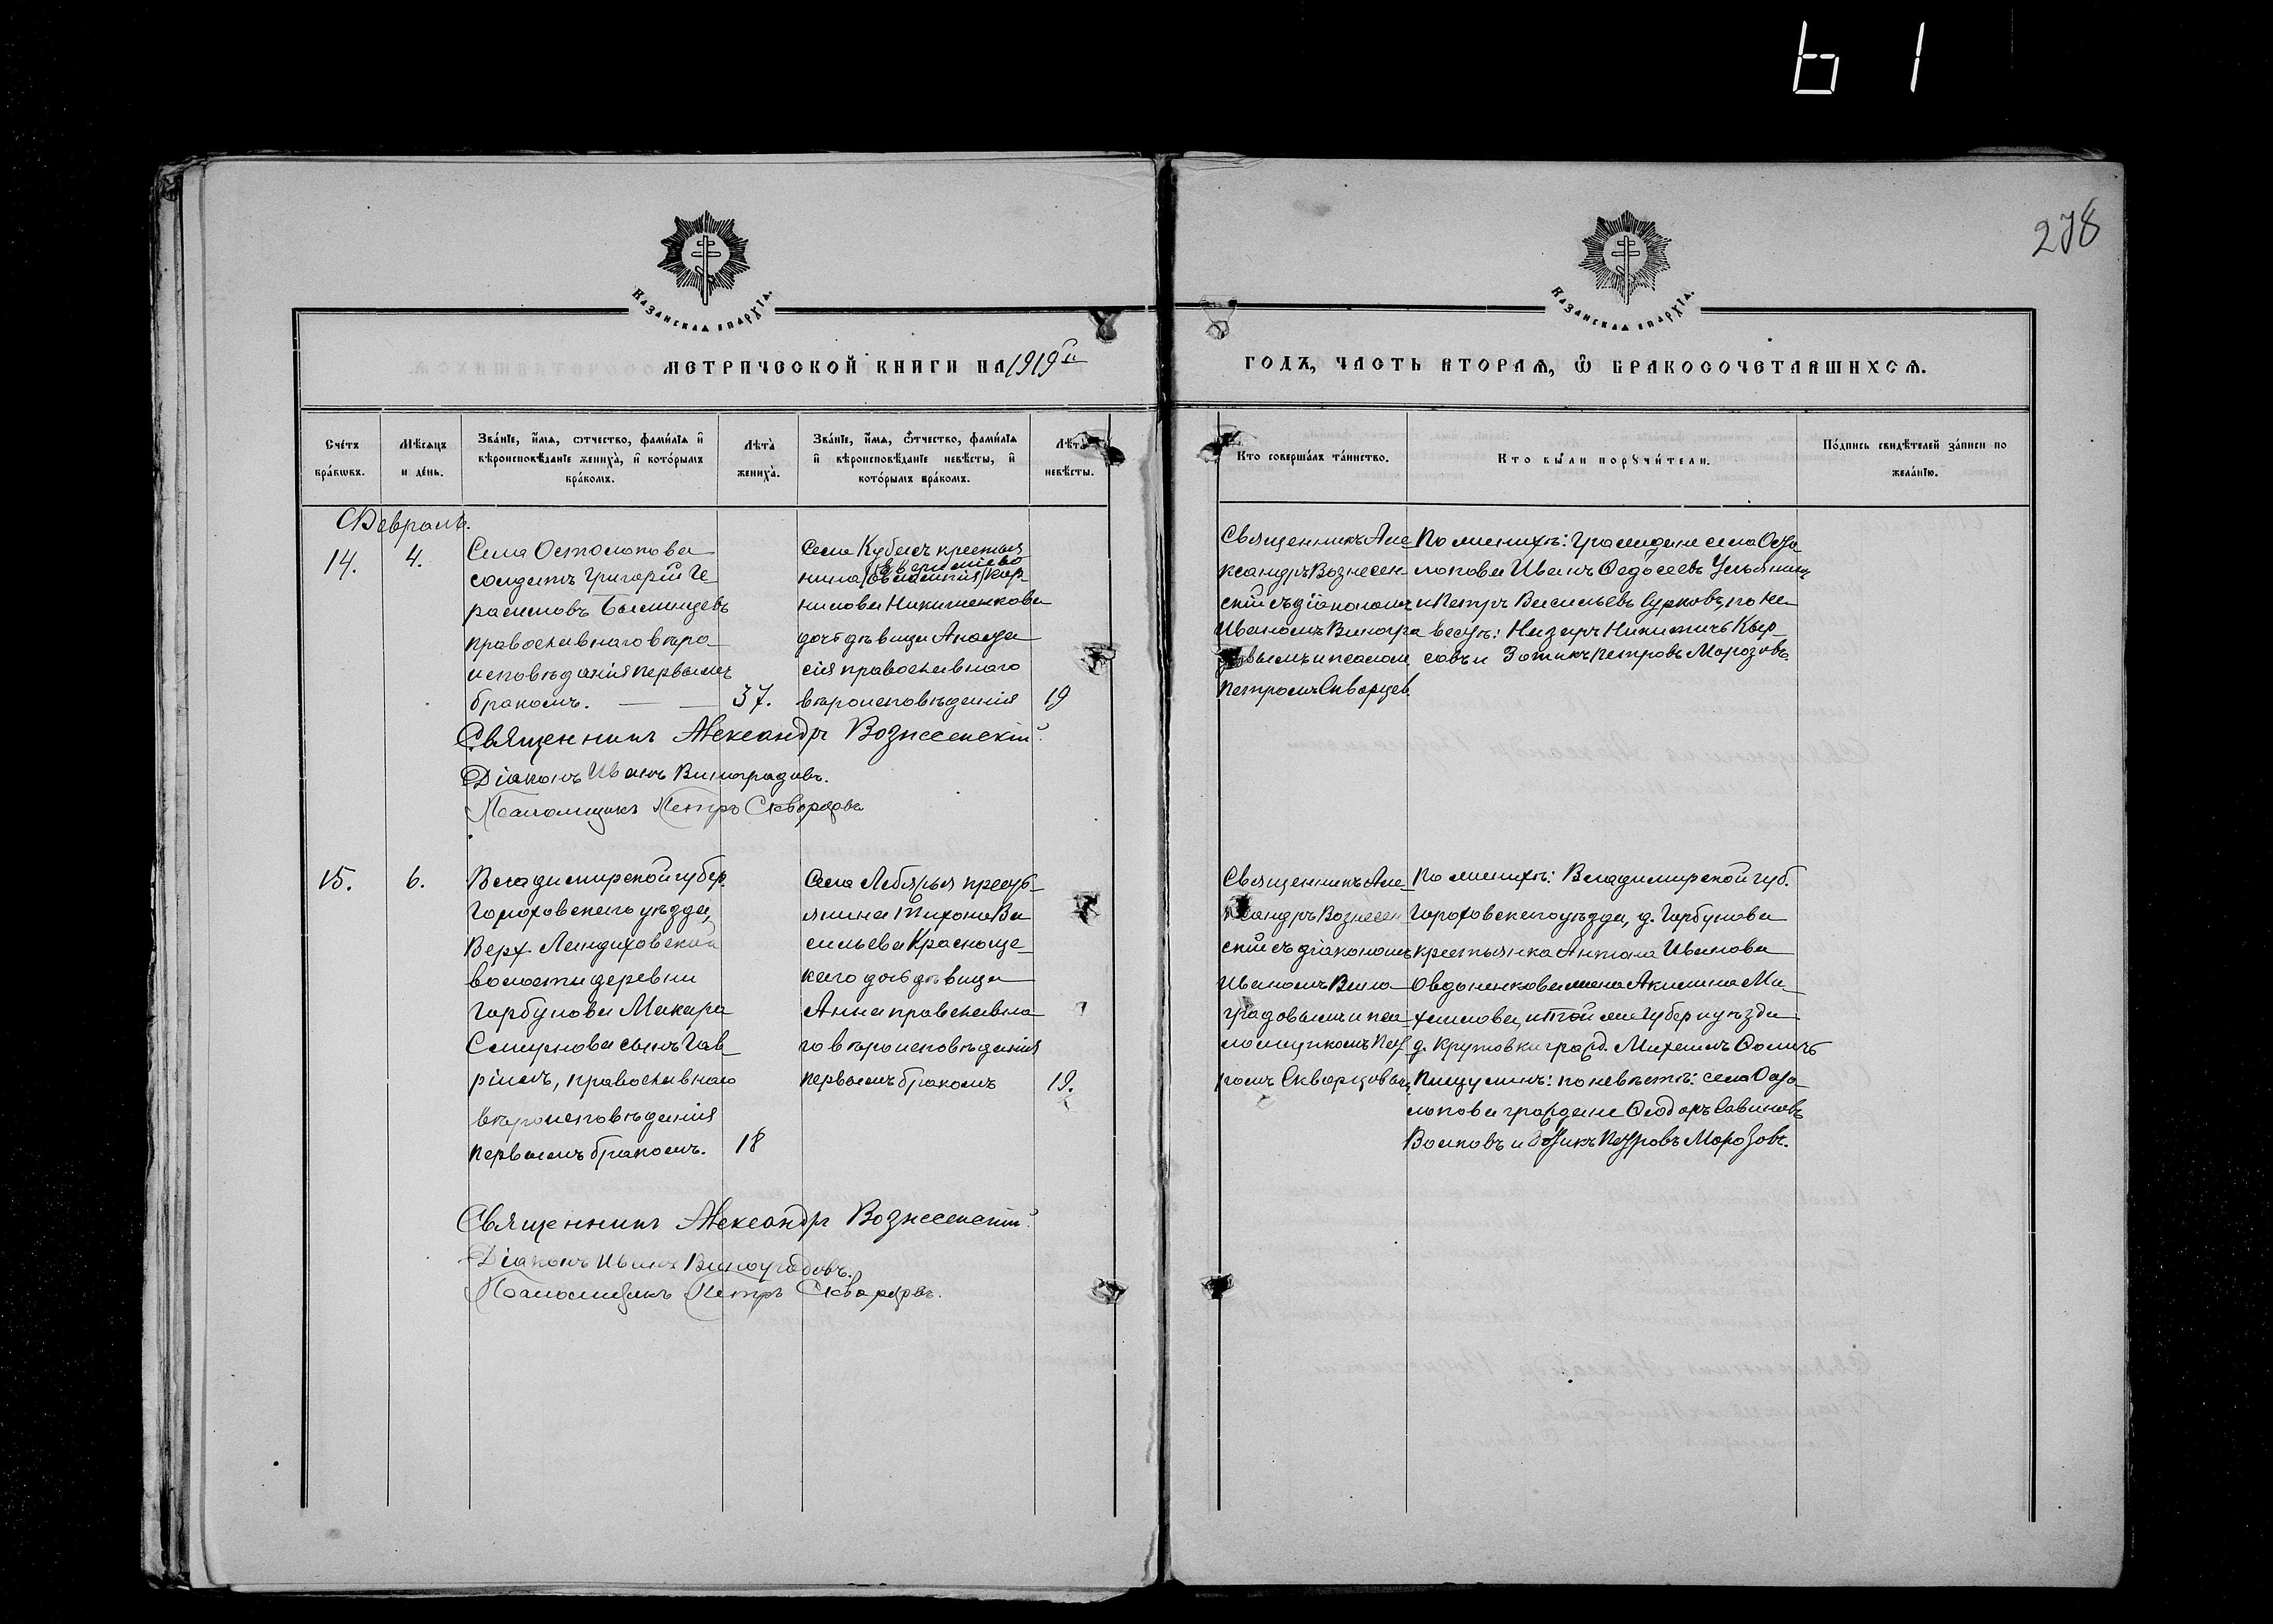 61
278
Казанская епархїа.
Казанская епархїа.
МЕТРИЧЕСКОЙ КНИГИ НА 1919 й
ГОДЪ, ЧАСТЬ ВТОРАѦ, Ѡ БРАКОСОЧЕТАВШИХСѦ.
Сче́тъ бра́кѡвъ.
Мѣ́сѧцъ и де́нь.
Зва́нїе, и҆́мѧ, ѻ҆́тчество, фами́лїѧ и҆ вѣроисповѣ́данїе жениха̀, и҆ кото́рымъ бра́комъ.
Лѣ́та̀ жениха̀.
Зва́нїе, и҆́мѧ, ѻ҆́тчество, фами́лїѧ и҆ вѣроисповѣ́данїе невѣ́сты, и҆ кото́рымъ бра́комъ.
Лѣ́та̀ невѣ́сты.
Кто соверша́лъ та́инство.
Кто бы́ли порꙋчи́тели.
По́дпись свидѣ́телей за́писи по жела́нїю.
Февраль.
14.
4.
Села Остолопова
солдатъ Григорій Ге-
расимовъ
православнаго вѣро-
исповѣданія первымъ
бракомъ.
37.
Села Кубасъ крестья
нина Кор-
нилова Никитенкова
дочь дѣвица Анаста
сія православнаго
вѣроисповѣданія
19
Священникъ Але-
ксандръ Вознесен-
скій съ діакономъ
Иваномъ Виногра
довымъ и псалом
Петромъ Скварцев.
По женихѣ: Граждане села Осто-
лопова Иванъ Ѳедосеевъ Ульянинъ
и Петръ Васильевъ Сурковъ, по не
вѣстѣ: Назаръ Никитичъ Кыр-
совъ и Зотикъ Петровъ Морозовъ.
Священникъ Александръ Вознесенскій.
Діаконъ Иванъ Виноградовъ.
Псаломщикъ Петръ Скварцовъ
15.
6.
Владимирской губер.
Гороховскаго уѣзда,
Верх. Ландиховской
волости деревни
Горбунова Макара
Смирнова сынъ Гав-
ріилъ, православнаго
вѣроисповѣданія
первымъ бракомъ.
18
Села Лебяжья крестьянина Тихона Ва
сильева Краснаще-
каго дочь дѣвица
Анна православна-
го вѣроисповѣданія
первымъ бракомъ
19.
Священникъ Але-
ксандръ Вознесен
скій съ діакономъ
Иваномъ Вино-
градовымъ и пса-
ломщикомъ Пет
ромъ Скварцовымъ
По женихѣ: Владимирской губ.
Гороховскаго уѣзда, д. Горбунова
крестьянка Антона Иванова
Овдоненкова жена Акилина Ма-
химова, и той же губер и уѣзда
д. Крутовки гражд. Михаилъ Ѳомичъ
Пищулинъ: по невѣстѣ: села Осто-
лопова граждане Ѳеодоръ Савиновъ
Волковъ и Зотикъ Петровъ Морозовъ.
Священникъ Александръ Вознесенскій.
Діаконъ Иванъ Виноградовъ.
Псаломщикъ Петръ Скварцовъ.